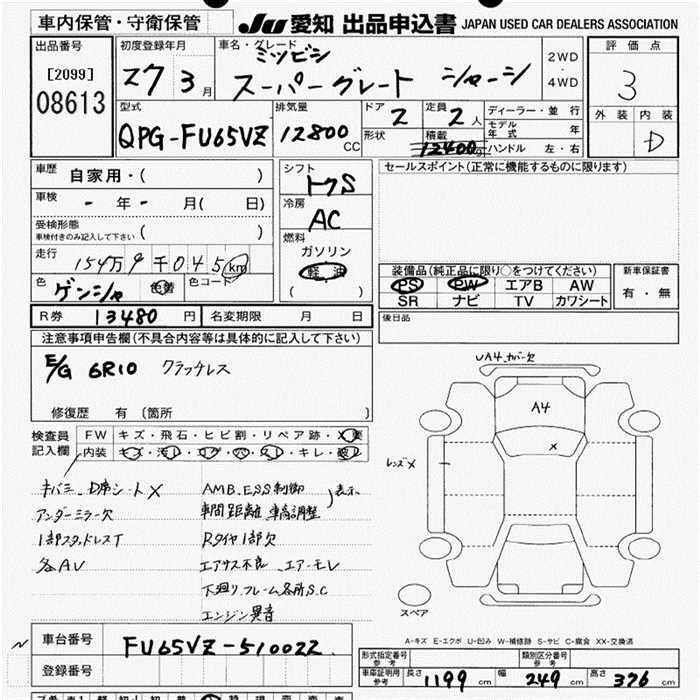 車内保管・守衛保管
JU 愛知 出品申込書 JAPAN USED CAR DEALERS ASSOCIATION
出品番号
[2099]
08613
初度登録年月
27 3月
車名・グレード
ミツビシ
スーパーグレート シャーシ
2WD
・
4WD
評価点
3
外装 内装
D
型式
QPG-FU65VZ
排気量
12800CC
ドア 2
形状
定員 2人
積載 12400
ディーラー・並行
モデル年式 年
ハンドル 左・右
車歴 自家用・( )
車検 - 年 - 月( 日)
受検形態
車検付きのみ記入して下さい ( )
走行 154万9千045km
色 ゲンシャ 色替 色コード
シフト
冷房
AC
燃料
ガソリン
軽油
( )
セールスポイント(正常に機能するものに限ります)
装備品(純正品に限り○をつけてください)
PS PW エアB AW
SR ナビ TV カワシート
新車保証書
有・無
R券 13480円 名変期限 月 日
後日品
注意事項申告欄(不具合内容等は具体的に記入して下さい)
E/G 6R10 クラッチレス
修復歴 有 〔箇所 〕
UA4.カバー欠
A4
x
レンズX
検査員
記入欄
FW キズ・飛石・ヒビ割・リペア跡・X要
内装 キズ・汚レ・コゲ・穴・スレ・キレ・破レ
キバミ D席シートX
アンダーミラー欠
1部スタッドレスT
各AV
AMB.ESS制御
車間距離 車高調整 )表示
Rタイヤ1部欠
エアサス不良 エアーモレ
下廻りフレーム各所S.C
エンジン異音
スペア
A-キズ E-エクボ U-凹み W-補修跡 S-サビ C-腐食 XX-交換済
車台番号 FU65VZ-510022
登録番号
形式指定番号
参考
類別区分番号
参考
車庫証明用
参考
長さ 1199cm 幅 249cm 高さ 376cm